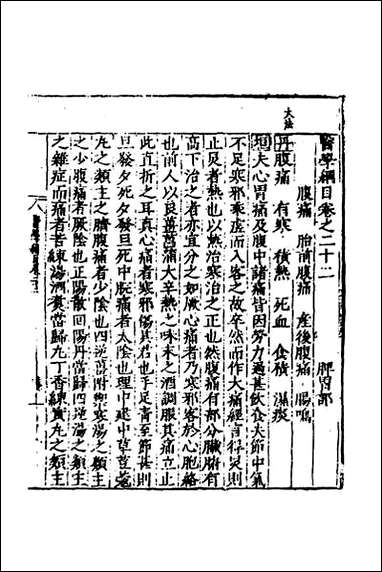 醫學綱目卷之二十二　脾胃部
腹痛　胎前腹痛　產後腹痛　腸鳴
大法
丹腹痛　有寒　積熱　死血　食積　濕痰
垣夫心胃痛及腹中諸痛皆因勞力過甚飲食失節中氣
不足寒邪乘虛而入客之故卒然而作大痛經言得炅則
止炅者熱也以熱治寒治之正也然腹痛有部分臟腑有
高下治之者亦宜分之如厥心痛者乃寒邪客於心胞絡
也前人以良薑菖蒲大辛熱之味末之酒調服其痛立止
此直折之耳真心痛者寒邪傷其君也手足青至節甚則
旦發夕死夕發旦死中脘痛者太陰也理中建中草荳蔻
丸之類主之臍腹痛者少陰也四逆薑附御寒湯之類主
之少腹痛者厥陰也正陽散回陽丹當歸四逆湯之類主
之雜症而痛者苦練湯酒煑當歸丸丁香練實丸之類主